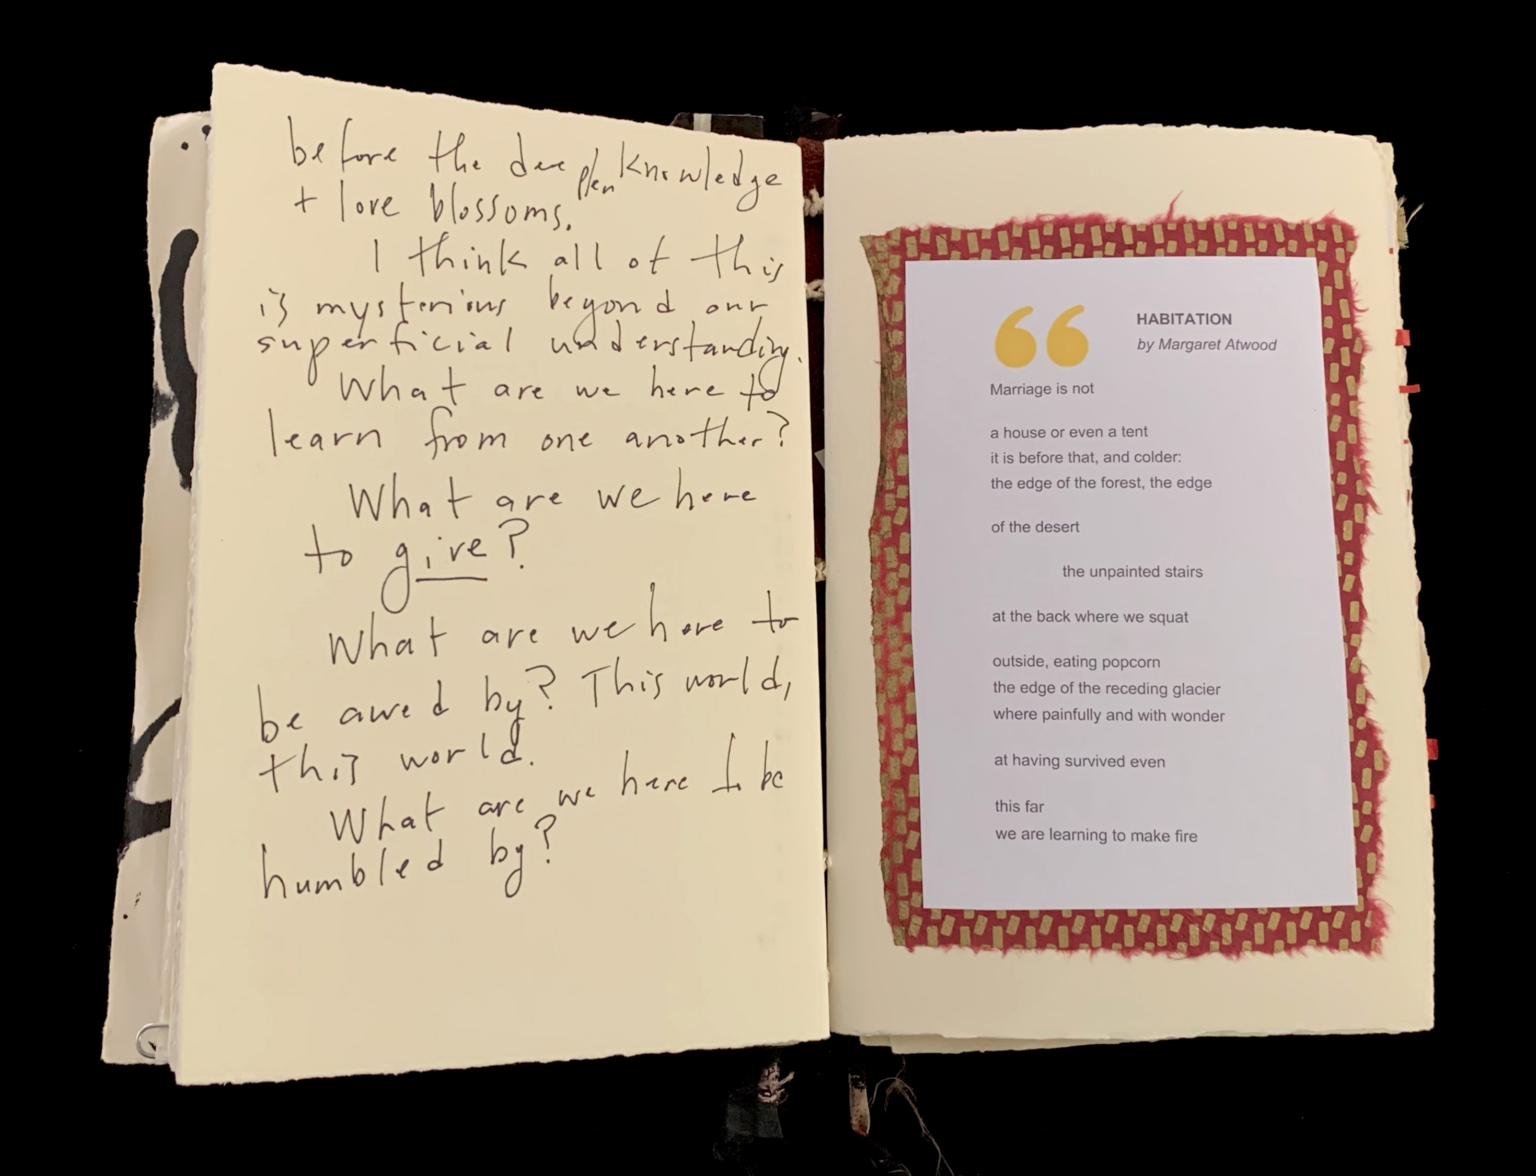 before the dee plen knowledge
+ love blossoms.
I think all of this
is mysterious beyond our
superficial understanding.
What are we here to
learn from one another?
What are we here
to give?
What are we here to
be awed by? This world,
this world.
What are we here to be
humbled by?
“
HABITATION
by Margaret Atwood
Marriage is not
a house or even a tent
it is before that, and colder:
the edge of the forest, the edge
of the desert
the unpainted stairs
at the back where we squat
outside, eating popcorn
the edge of the receding glacier
where painfully and with wonder
at having survived even
this far
we are learning to make fire